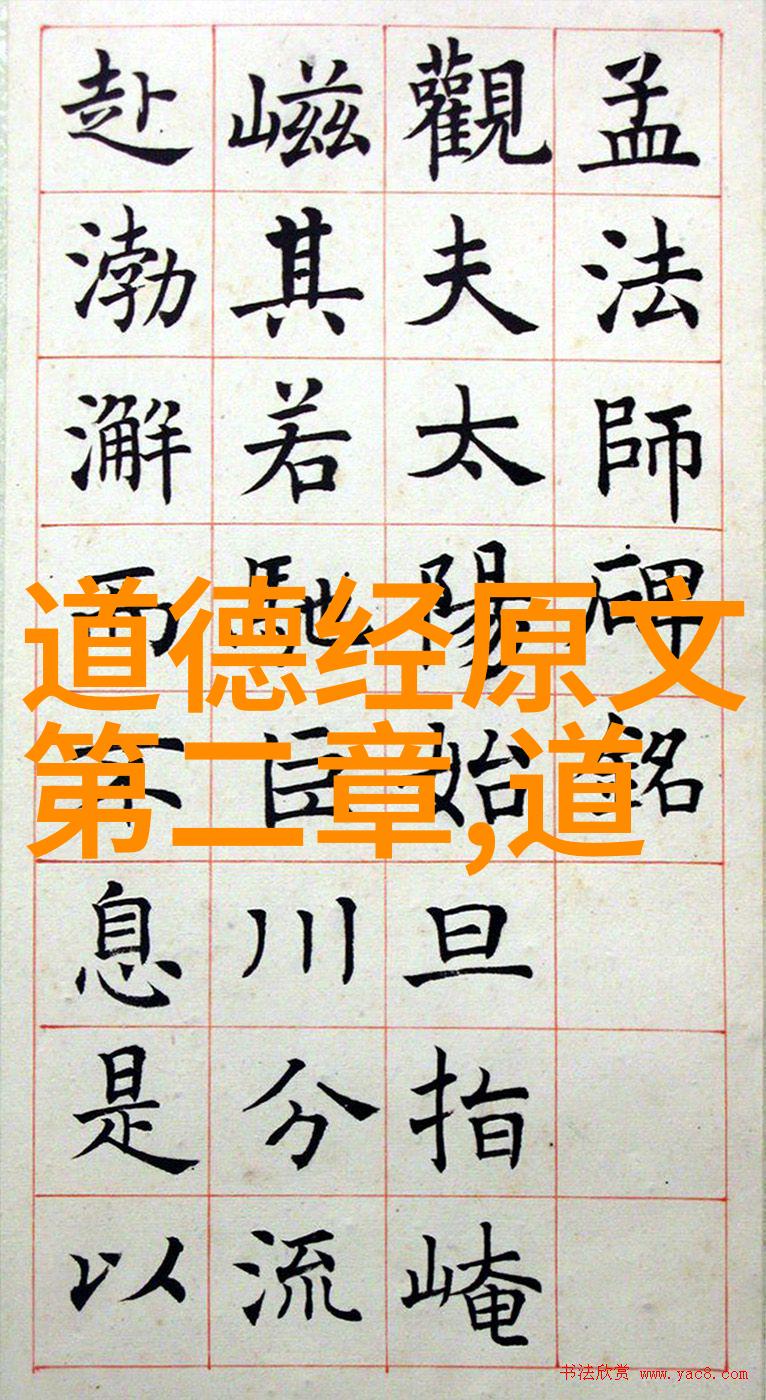 孟法師碑銘
觀夫太陽始旦指崦
嵫其若馳臣川分流
赴渤澥而不息是以
道德经原文
第二章,道
书法欣赏 www.yac8.com